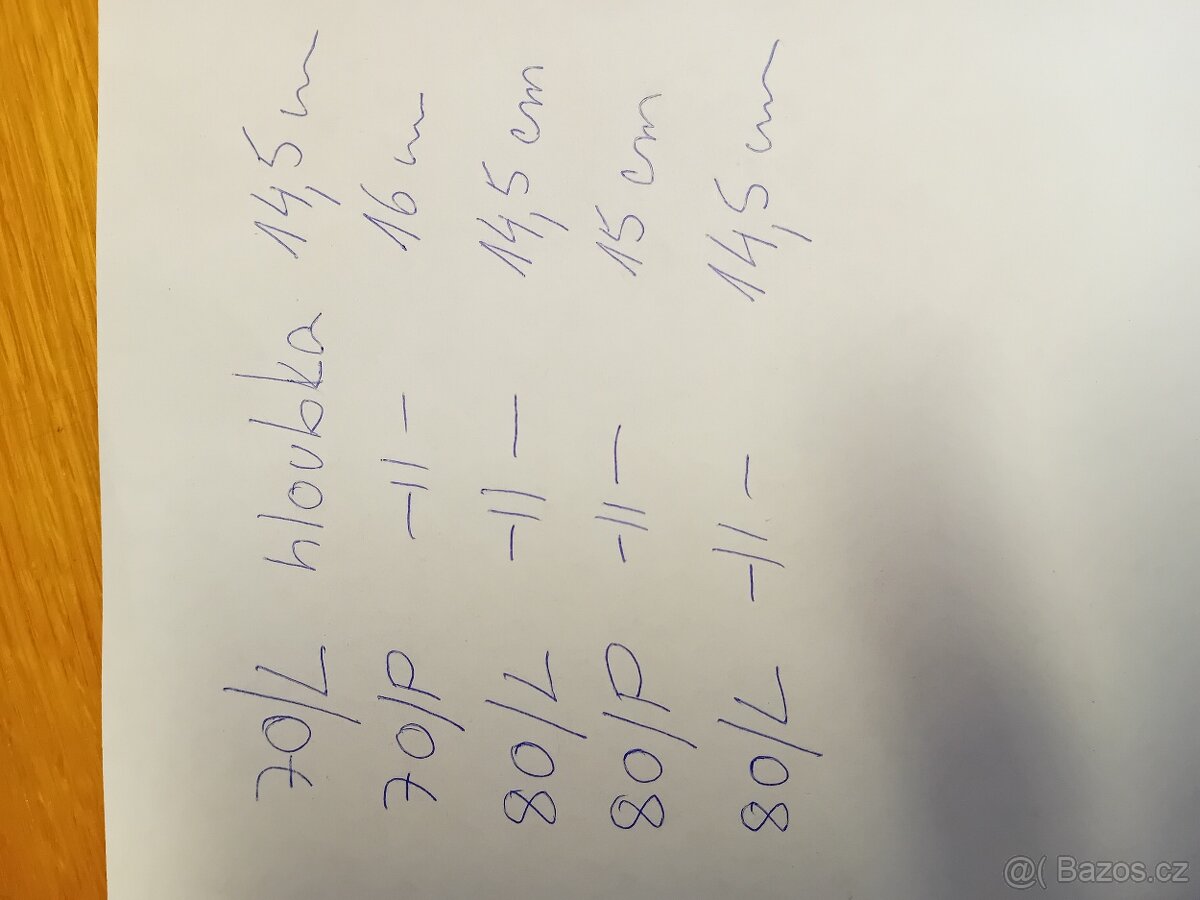 70/L hloubka 14,5 cm
70/P -||- 16 cm
80/L -||- 14,5 cm
80/P -||- 15 cm
80/L -||- 14,5 cm
@( Bazos.cz